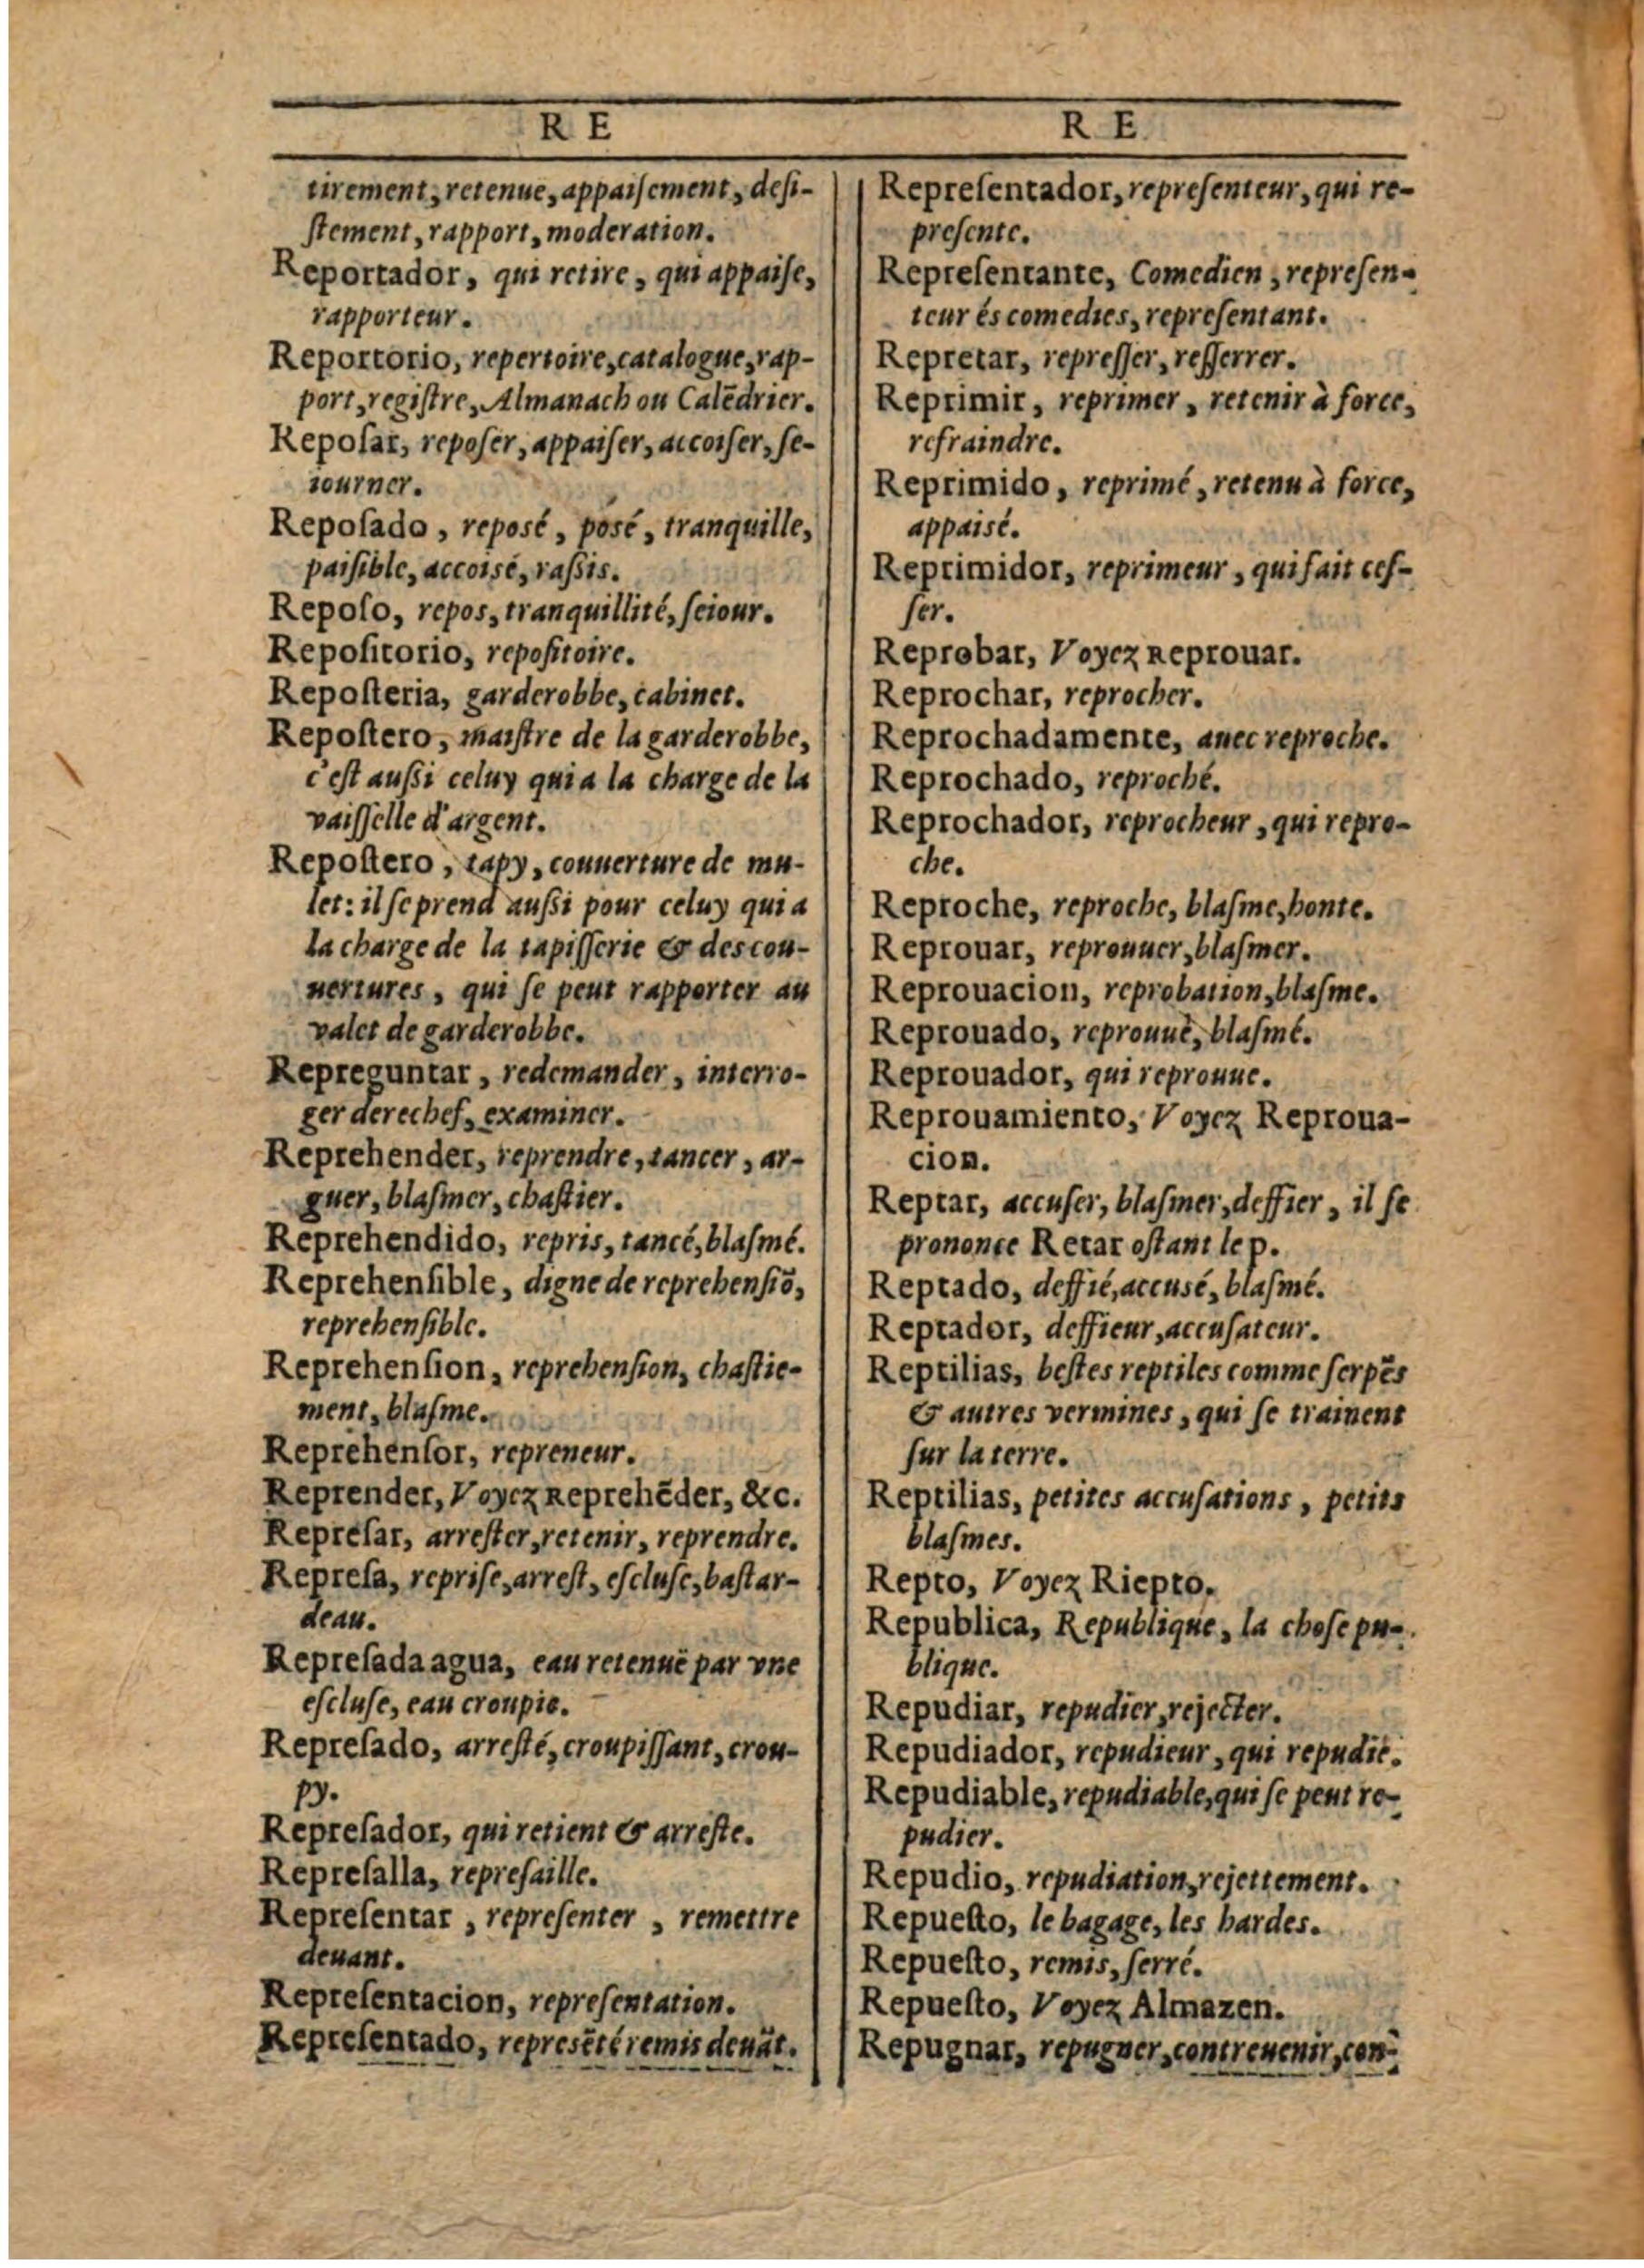 R E
tirement, retenue, appaiſement, deſi-
ſtement, rapport, moderation.
Reportador, qui retire, qui appaiſe,
rapporteur.
Reportorio, repertoire, catalogue, rap-
port, regiſtre, Almanach ou Calẽdrier.
Repoſar, repoſer, appaiſer, accoiſer, ſe-
iourner.
Repoſado, reposé, posé, tranquille,
paiſible, accoisé, raſsis.
Repoſo, repos, tranquillité, ſeiour.
Repoſitorio, repoſitoire.
Repoſteria, garderobbe, cabinet.
Repoſtero, maiſtre de la garderobbe,
c'eſt auſsi celuy qui a la charge de la
vaiſſelle d'argent.
Repoſtero, tapy, couuerture de mu-
let: il ſe prend auſsi pour celuy qui a
la charge de la tapiſſerie & des cou-
uertures, qui ſe peut rapporter au
valet de garderobbe.
Repreguntar, redemander, interro-
ger derechef, examiner.
Reprehender, reprendre, tancer, ar-
guer, blaſmer, chaſtier.
Reprehendido, repris, tancé, blaſmé.
Reprehenſible, digne de reprehenſiõ,
reprehenſible.
Reprehenſion, reprehenſion, chaſtie-
ment, blaſme.
Reprehenſor, repreneur.
Reprender, Voyez Reprehẽder, &c.
Repreſar, arreſter, retenir, reprendre.
Repreſa, repriſe, arreſt, eſcluſe, baſtar-
deau.
Repreſada agua, eau retenuë par vne
eſcluſe, eau croupie.
Repreſado, arreſté, croupiſſant, crou-
py.
Repreſador, qui retient & arreſte.
Repreſalla, repreſaille.
Repreſentar, repreſenter, remettre
deuant.
Repreſentacion, repreſentation.
Repreſentado, represẽté remis deuãt.
R E
Repreſentador, repreſenteur, qui re-
preſente.
Repreſentante, Comedien, repreſen-
teur és comedies, repreſentant.
Repretar, repreſſer, reſſerrer.
Reprimir, reprimer, retenir à force,
refraindre.
Reprimido, reprimé, retenu à force,
appaisé.
Reprimidor, reprimeur, qui fait ceſ-
ſer.
Reprobar, Voyez Reprouar.
Reprochar, reprocher.
Reprochadamente, auec reproche.
Reprochado, reproché.
Reprochador, reprocheur, qui repro-
che.
Reproche, reproche, blaſme, honte.
Reprouar, reprouuer, blaſmer.
Reprouacion, reprobation, blaſme.
Reprouado, reprouué, blaſmé.
Reprouador, qui reprouue.
Reprouamiento, Voyez Reproua-
cion.
Reptar, accuſer, blaſmer, deffier, il ſe
prononce Retar oſtant le p.
Reptado, deffié, accusé, blaſmé.
Reptador, deffieur, accuſateur.
Reptilias, beſtes reptiles comme ſerpẽs
& autres vermines, qui ſe trainent
ſur la terre.
Reptilias, petites accuſations, petits
blaſmes.
Repto, Voyez Riepto.
Republica, Republique, la choſe pu-
blique.
Repudiar, repudier, rejecter.
Repudiador, repudieur, qui repudie.
Repudiable, repudiable, qui ſe peut re-
pudier.
Repudio, repudiation, rejettement.
Repueſto, le bagage, les hardes.
Repueſto, remis, ſerré.
Repueſto, Voyez Almazen.
Repugnar, repugner, contreuenir, con-